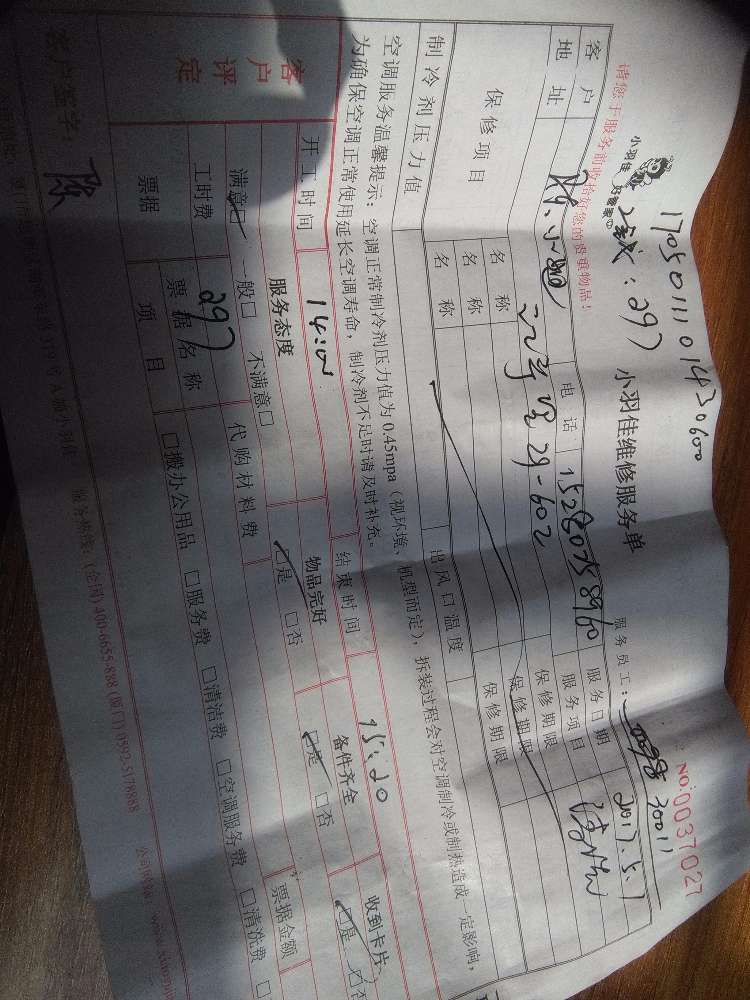 1705011101430600
小羽佳 好管家
小羽佳维修服务单
NO:0037027
：297
请您于服务前收拾好您的贵重物品！
服务员工：
30011
客户
电话
15280758960
服务日期
2017.5.1
地址
29-602
服务项目
保修项目
名称
保修期限
名称
保修期限
名称
保修期限
制冷剂压力值
出风口温度
空调服务温馨提示：空调正常制冷剂压力值为0.45mpa（视环境、机型而定），拆装过程会对空调制冷或制热造成一定影响，
为确保空调正常使用延长空调寿命，制冷剂不足时请及时补充。
开工时间
14:00
结束时间
15:20
客户评定
服务态度
物品完好
备件齐全
收到卡片
满意□ 一般□ 不满意□
□是 □否
□是 □否
□是 □否
工时费
297
代购材料费
票据
票据名称
票据金额
项目
□搬办公用品 □服务费 □清洁费 □空调服务费 □清洗费
客户签字：
陈
379号A栋小羽佳
服务热线：(全国)400-6655-888 (厦门)0592-5178868